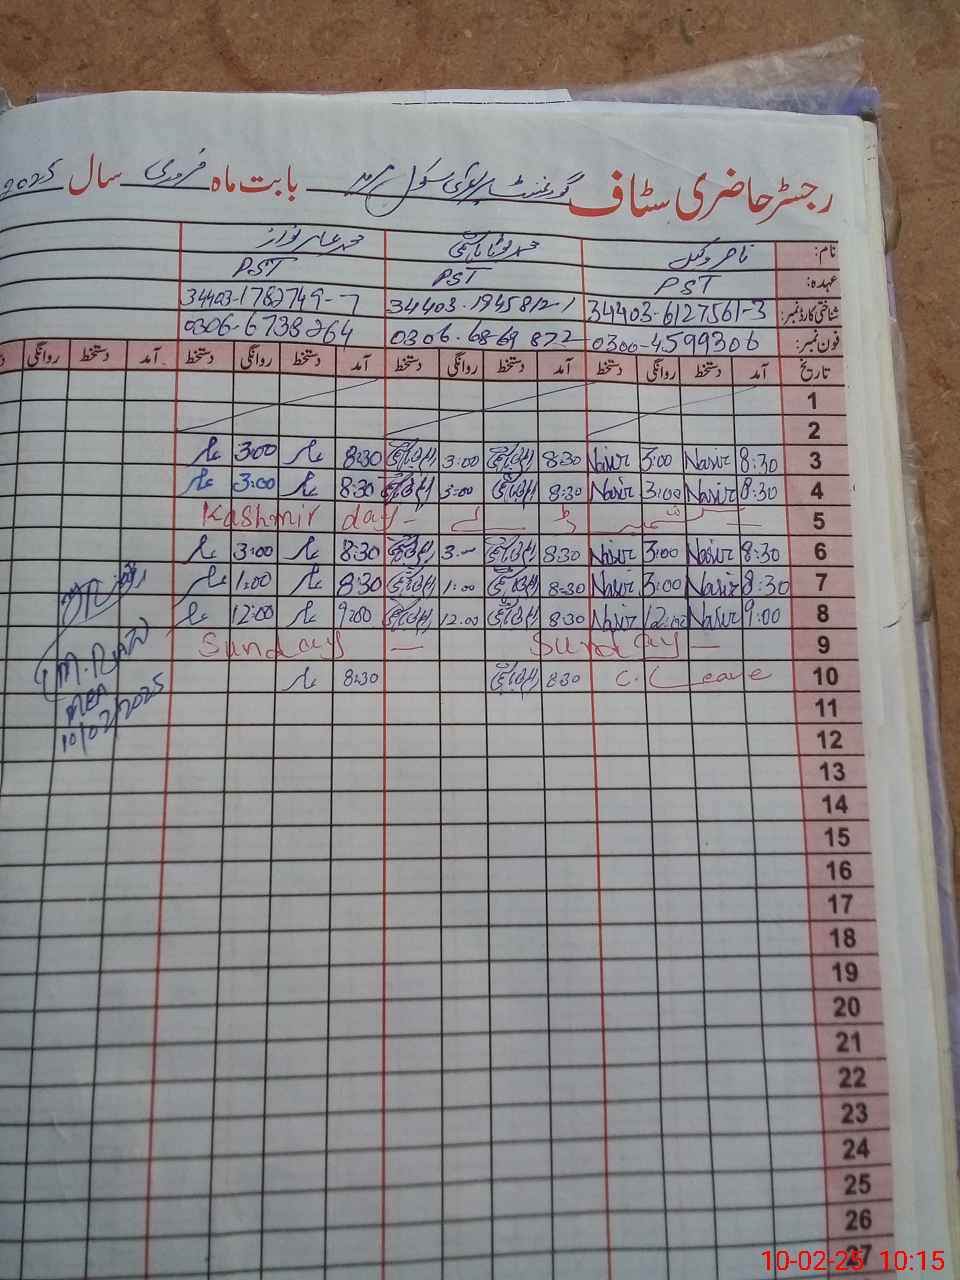 رجسٹر حاضری سٹاف گورنمنٹ پرائمری سکول بابت ماہ فروری سال 2025
نام: ناصر وکیل محمد عامر نواز
عہدہ: PST PST PST
شناختی کارڈ نمبر: 34403-6127561-3 34403-1945812-1 34403-1782749-7
فون نمبر: 0300-4599306 0306-6869872 0306-6738264
تاریخ آمد دستخط روانگی دستخط آمد دستخط روانگی دستخط آمد دستخط روانگی دستخط آمد دستخط روانگی
1
2
3 8:30 Nasir 3:00 Nasir 8:30 3:00 8:30 3:00
4 8:30 Nasir 3:00 Nasir 8:30 3:00 8:30 3:00
5 کشمیر ڈے Kashmir day
6 8:30 Nasir 3:00 Nasir 8:30 3:00 8:30 3:00
7 8:30 Nasir 3:00 Nasir 8:30 1:00 8:30 1:00
8 9:00 Nasir 12:00 Nasir 8:30 12:00 9:00 12:00
9 Sunday Sunday
10 C. Leave 8:30 8:30
M. Riaz
10/02/2025
11
12
13
14
15
16
17
18
19
20
21
22
23
24
25
26
27
10-02-25 10:15